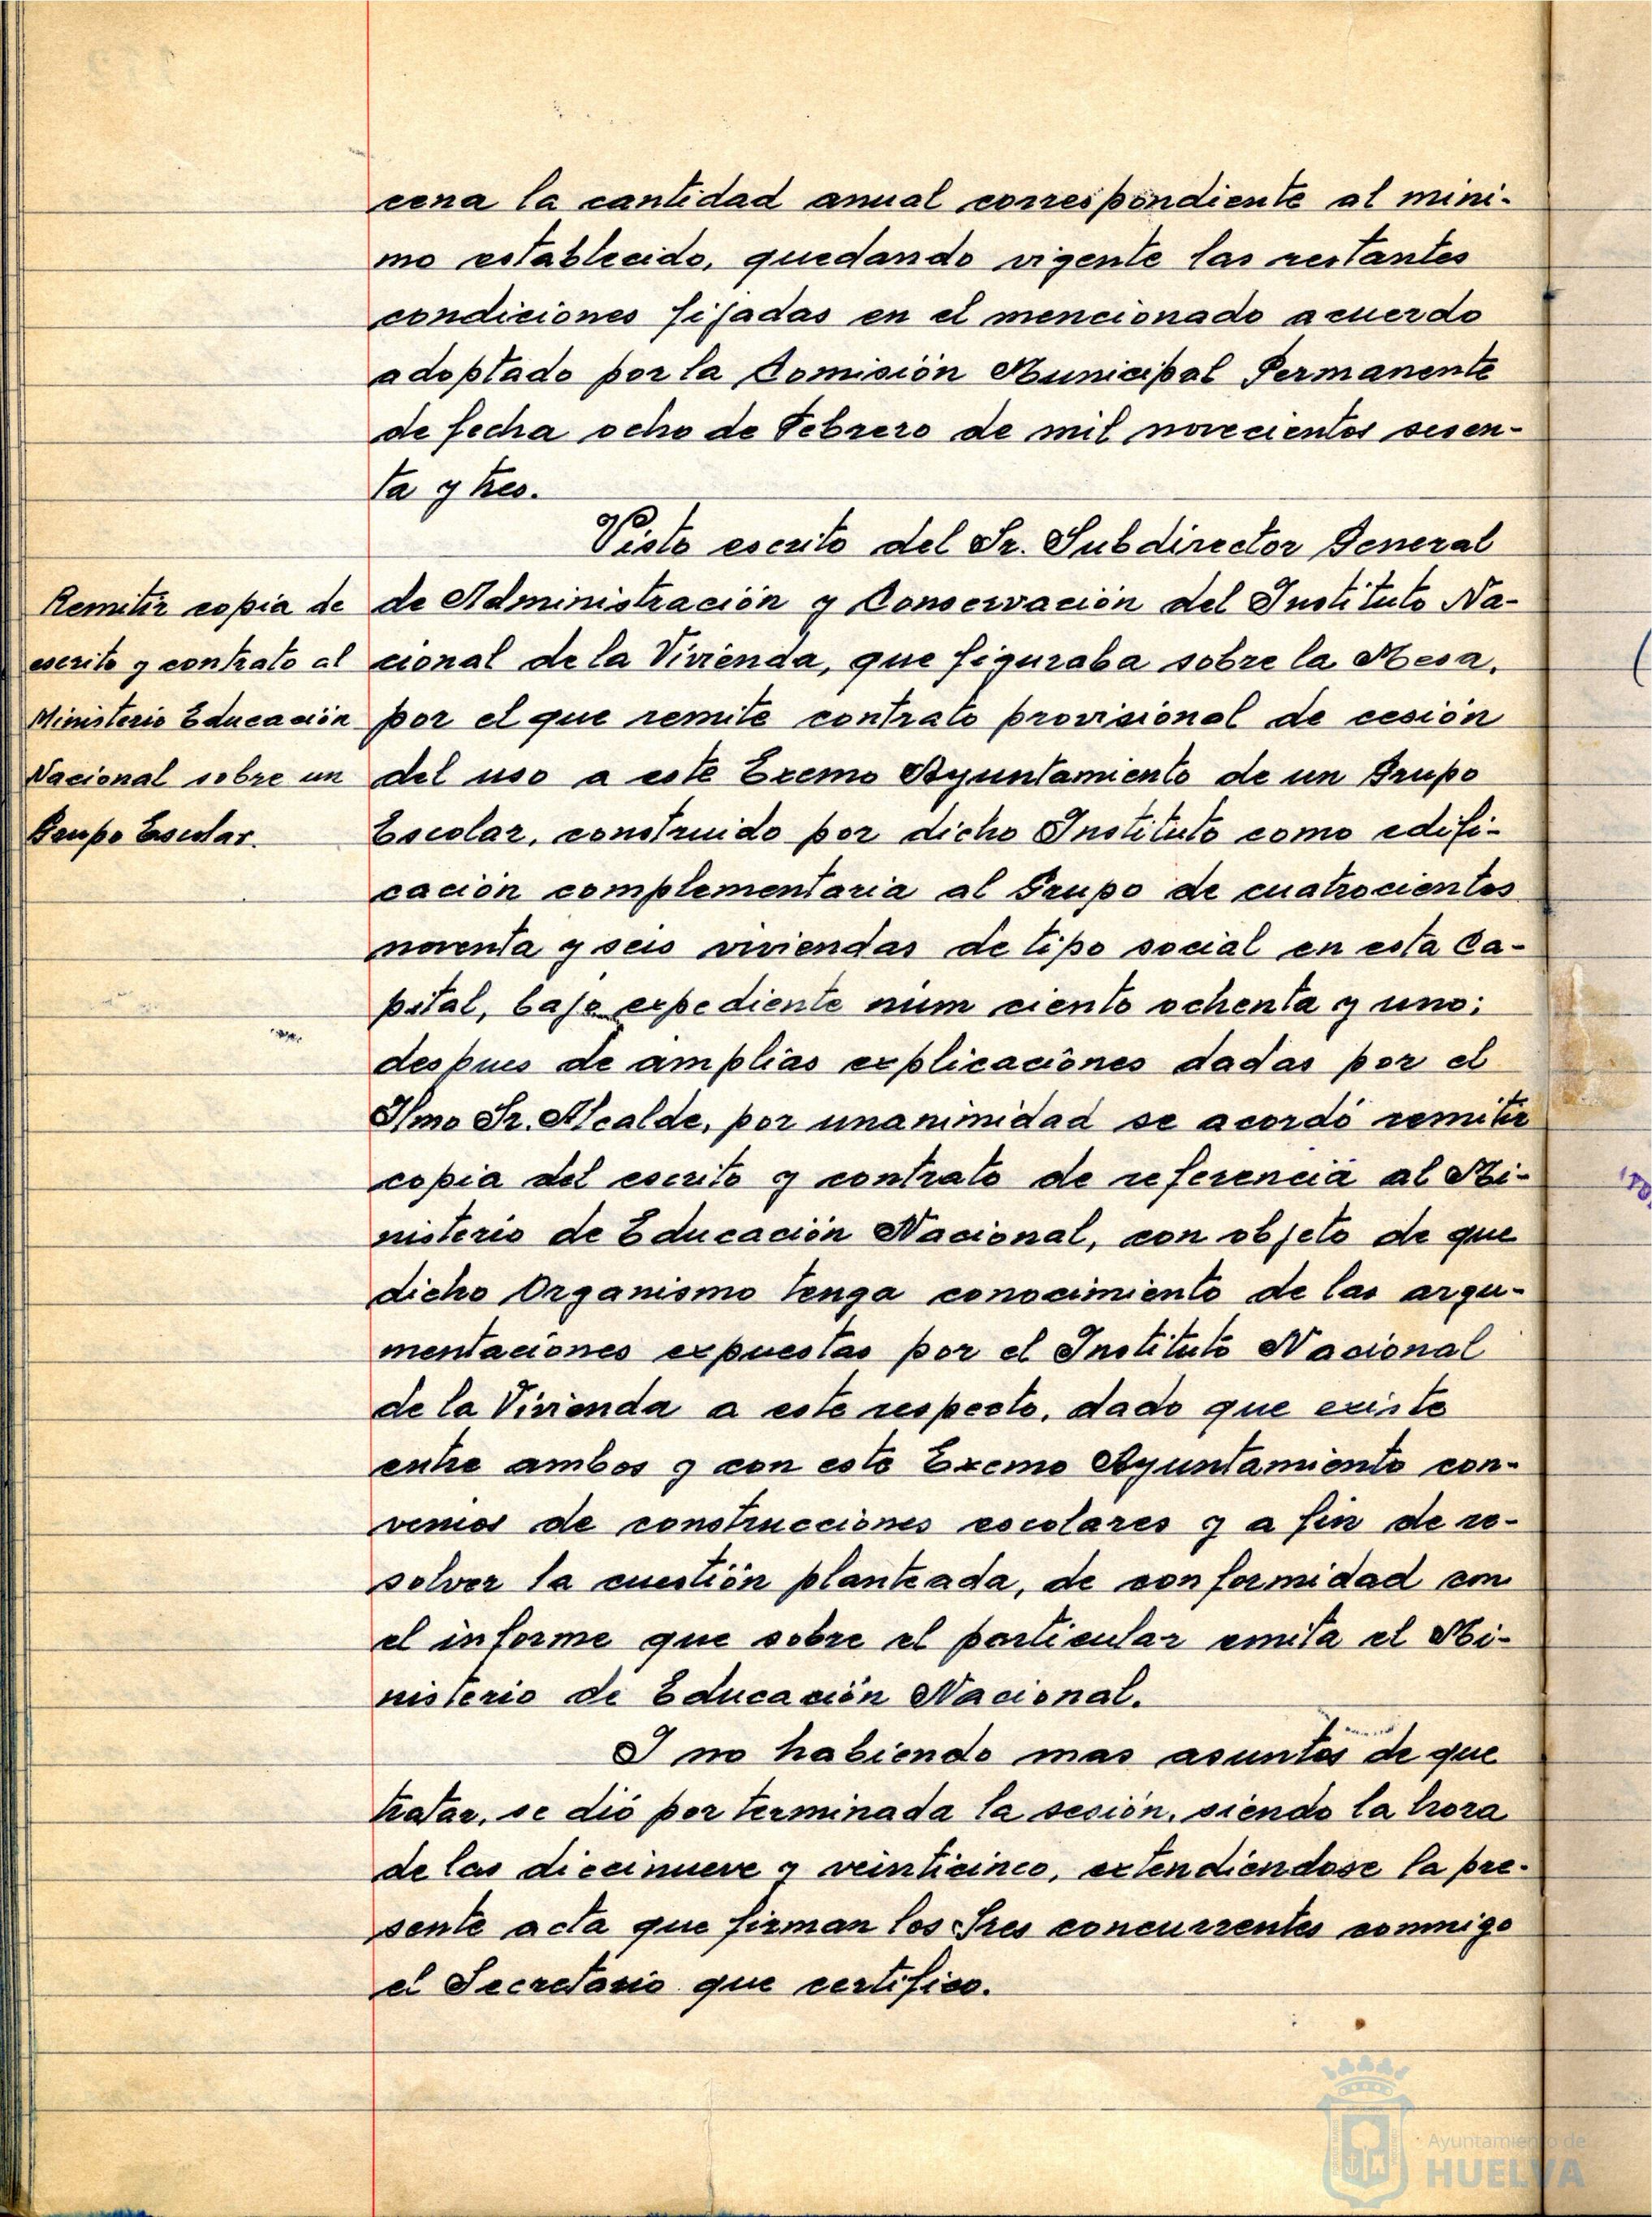 cena la cantidad anual correspondiente al mini-
mo establecido, quedando vigente las restantes
condiciones fijadas en el mencionado acuerdo
adoptado por la Comisión Municipal Permanente
de fecha ocho de Febrero de mil novecientos sesen-
ta y tres.
Visto escrito del Sr. Subdirector General
de Administración y Conservación del Instituto Na-
cional de la Vivienda, que figuraba sobre la Mesa,
por el que remite contrato provisional de cesión
del uso a este Excmo Ayuntamiento de un Grupo
Escolar, construido por dicho Instituto como edifi-
cación complementaria al Grupo de cuatrocientos
noventa y seis viviendas de tipo social en esta Ca-
pital, bajo expediente núm ciento ochenta y uno;
despues de amplias explicaciones dadas por el
Ilmo Sr. Alcalde, por unanimidad se acordó remitir
copia del escrito y contrato de referencia al Mi-
nisterio de Educación Nacional, con objeto de que
dicho Organismo tenga conocimiento de las argu-
mentaciones expuestas por el Instituto Nacional
de la Vivienda a este respecto, dado que existe
entre ambos y con este Excmo Ayuntamiento con-
venios de construcciones escolares y a fin de re-
solver la cuestión planteada, de conformidad con
el informe que sobre el particular emita el Mi-
nisterio de Educación Nacional.
Y no habiendo mas asuntos de que
tratar, se dió por terminada la sesión, siendo la hora
de las diecinueve y veinticinco, extendiéndose la pre-
sente acta que firman los Sres concurrentes conmigo
el Secretario que certifico.
Remitir copia de
escrito y contrato al
Ministerio Educación
Nacional sobre un
Grupo Escolar.
Ayuntamiento de
HUELVA